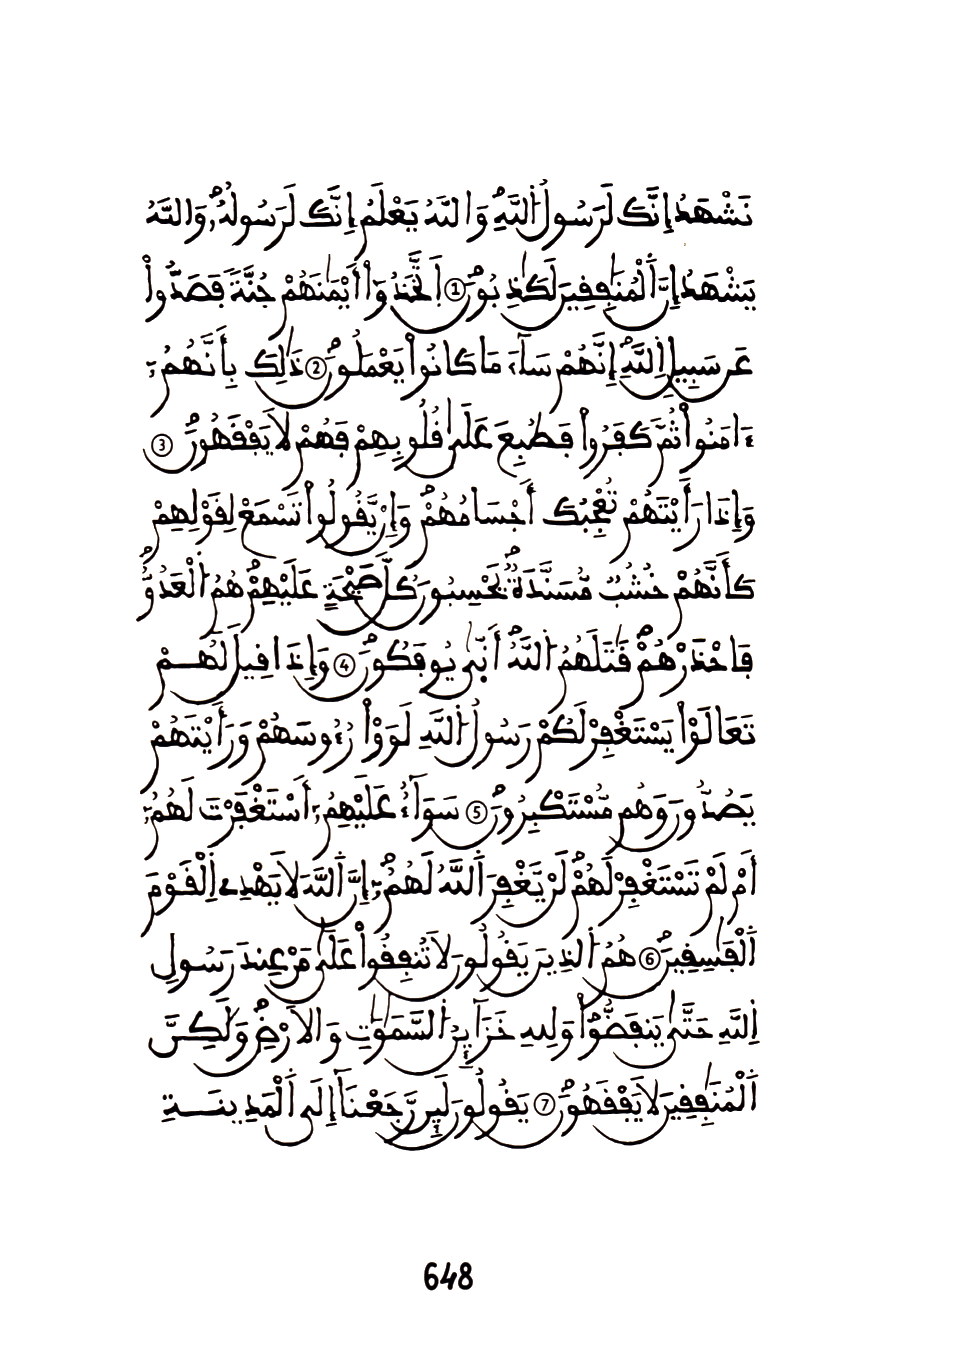 نَشْهَدُ إِنَّكَ لَرَسُولُ اُ۬للَّهِۖ وَاللَّهُ يَعْلَمُ إِنَّكَ لَرَسُولُهُۥۖ وَاللَّهُ
يَشْهَدُ إِنَّ اَ۬لْمُنَٰفِقِينَ لَكَٰذِبُونَۖ 1 اَ۪تَّخَذُوٓاْ أَيْمَٰنَهُمْ جُنَّةٗ فَصَدُّواْ
عَن سَبِيلِ اِ۬للَّهِۖ إِنَّهُمْ سَآءَ مَا كَانُواْ يَعْمَلُونَۖ 2 ذَٰلِكَ بِأَنَّهُمُۥٓ
ءَامَنُواْ ثُمَّ كَفَرُواْ فَطُبِعَ عَلَىٰ قُلُوبِهِمْ فَهُمْ لَا يَفْقَهُونَۖ 3
وَإِذَا رَأَيْتَهُمْ تُعْجِبُكَ أَجْسَامُهُمْۖ وَإِنْ يَّقُولُواْ تَسْمَعْ لِقَوْلِهِمْ
كَأَنَّهُمْ خُشُبٞ مُّسَنَّدَةٞۖ يَحْسِبُونَ كُلَّ صَيْحَةٍ عَلَيْهِمْۖ هُمُ اُ۬لْعَدُوُّ
فَاحْذَرْهُمْۖ قَٰتَلَهُمُ اُ۬للَّهُۖ أَنَّىٰ يُوفَكُونَۖ 4 وَإِذَا قِيلَ لَهُمْ
تَعَالَوْاْ يَسْتَغْفِرْ لَكُمْ رَسُولُ اُ۬للَّهِ لَوَوْاْ رُءُوسَهُمْ وَرَأَيْتَهُمْ
يَصُدُّونَ وَهُم مُّسْتَكْبِرُونَۖ 5 سَوَآءٌ عَلَيْهِمُۥٓ أَسْتَغْفَرْتَ لَهُمُۥٓ
أَمْ لَمْ تَسْتَغْفِرْ لَهُمْۖ لَنْ يَّغْفِرَ اَ۬للَّهُ لَهُمُۥٓۖ إِنَّ اَ۬للَّهَ لَا يَهْدِے اِ۬لْقَوْمَ
اَ۬لْفَٰسِقِينَۖ 6 هُمُ اُ۬لذِينَ يَقُولُونَ لَا تُنفِقُواْ عَلَىٰ مَنْ عِندَ رَسُولِ
اِ۬للَّهِ حَتَّىٰ يَنفَضُّواْۖ وَلِلهِ خَزَآئِنُ اُ۬لسَّمَٰوَٰتِ وَالْأَرْضِۖ وَلَٰكِنَّ
اَ۬لْمُنَٰفِقِينَ لَا يَفْقَهُونَۖ 7 يَقُولُونَ لَئِن رَّجَعْنَآ إِلَى اَ۬لْمَدِينَةِ
648